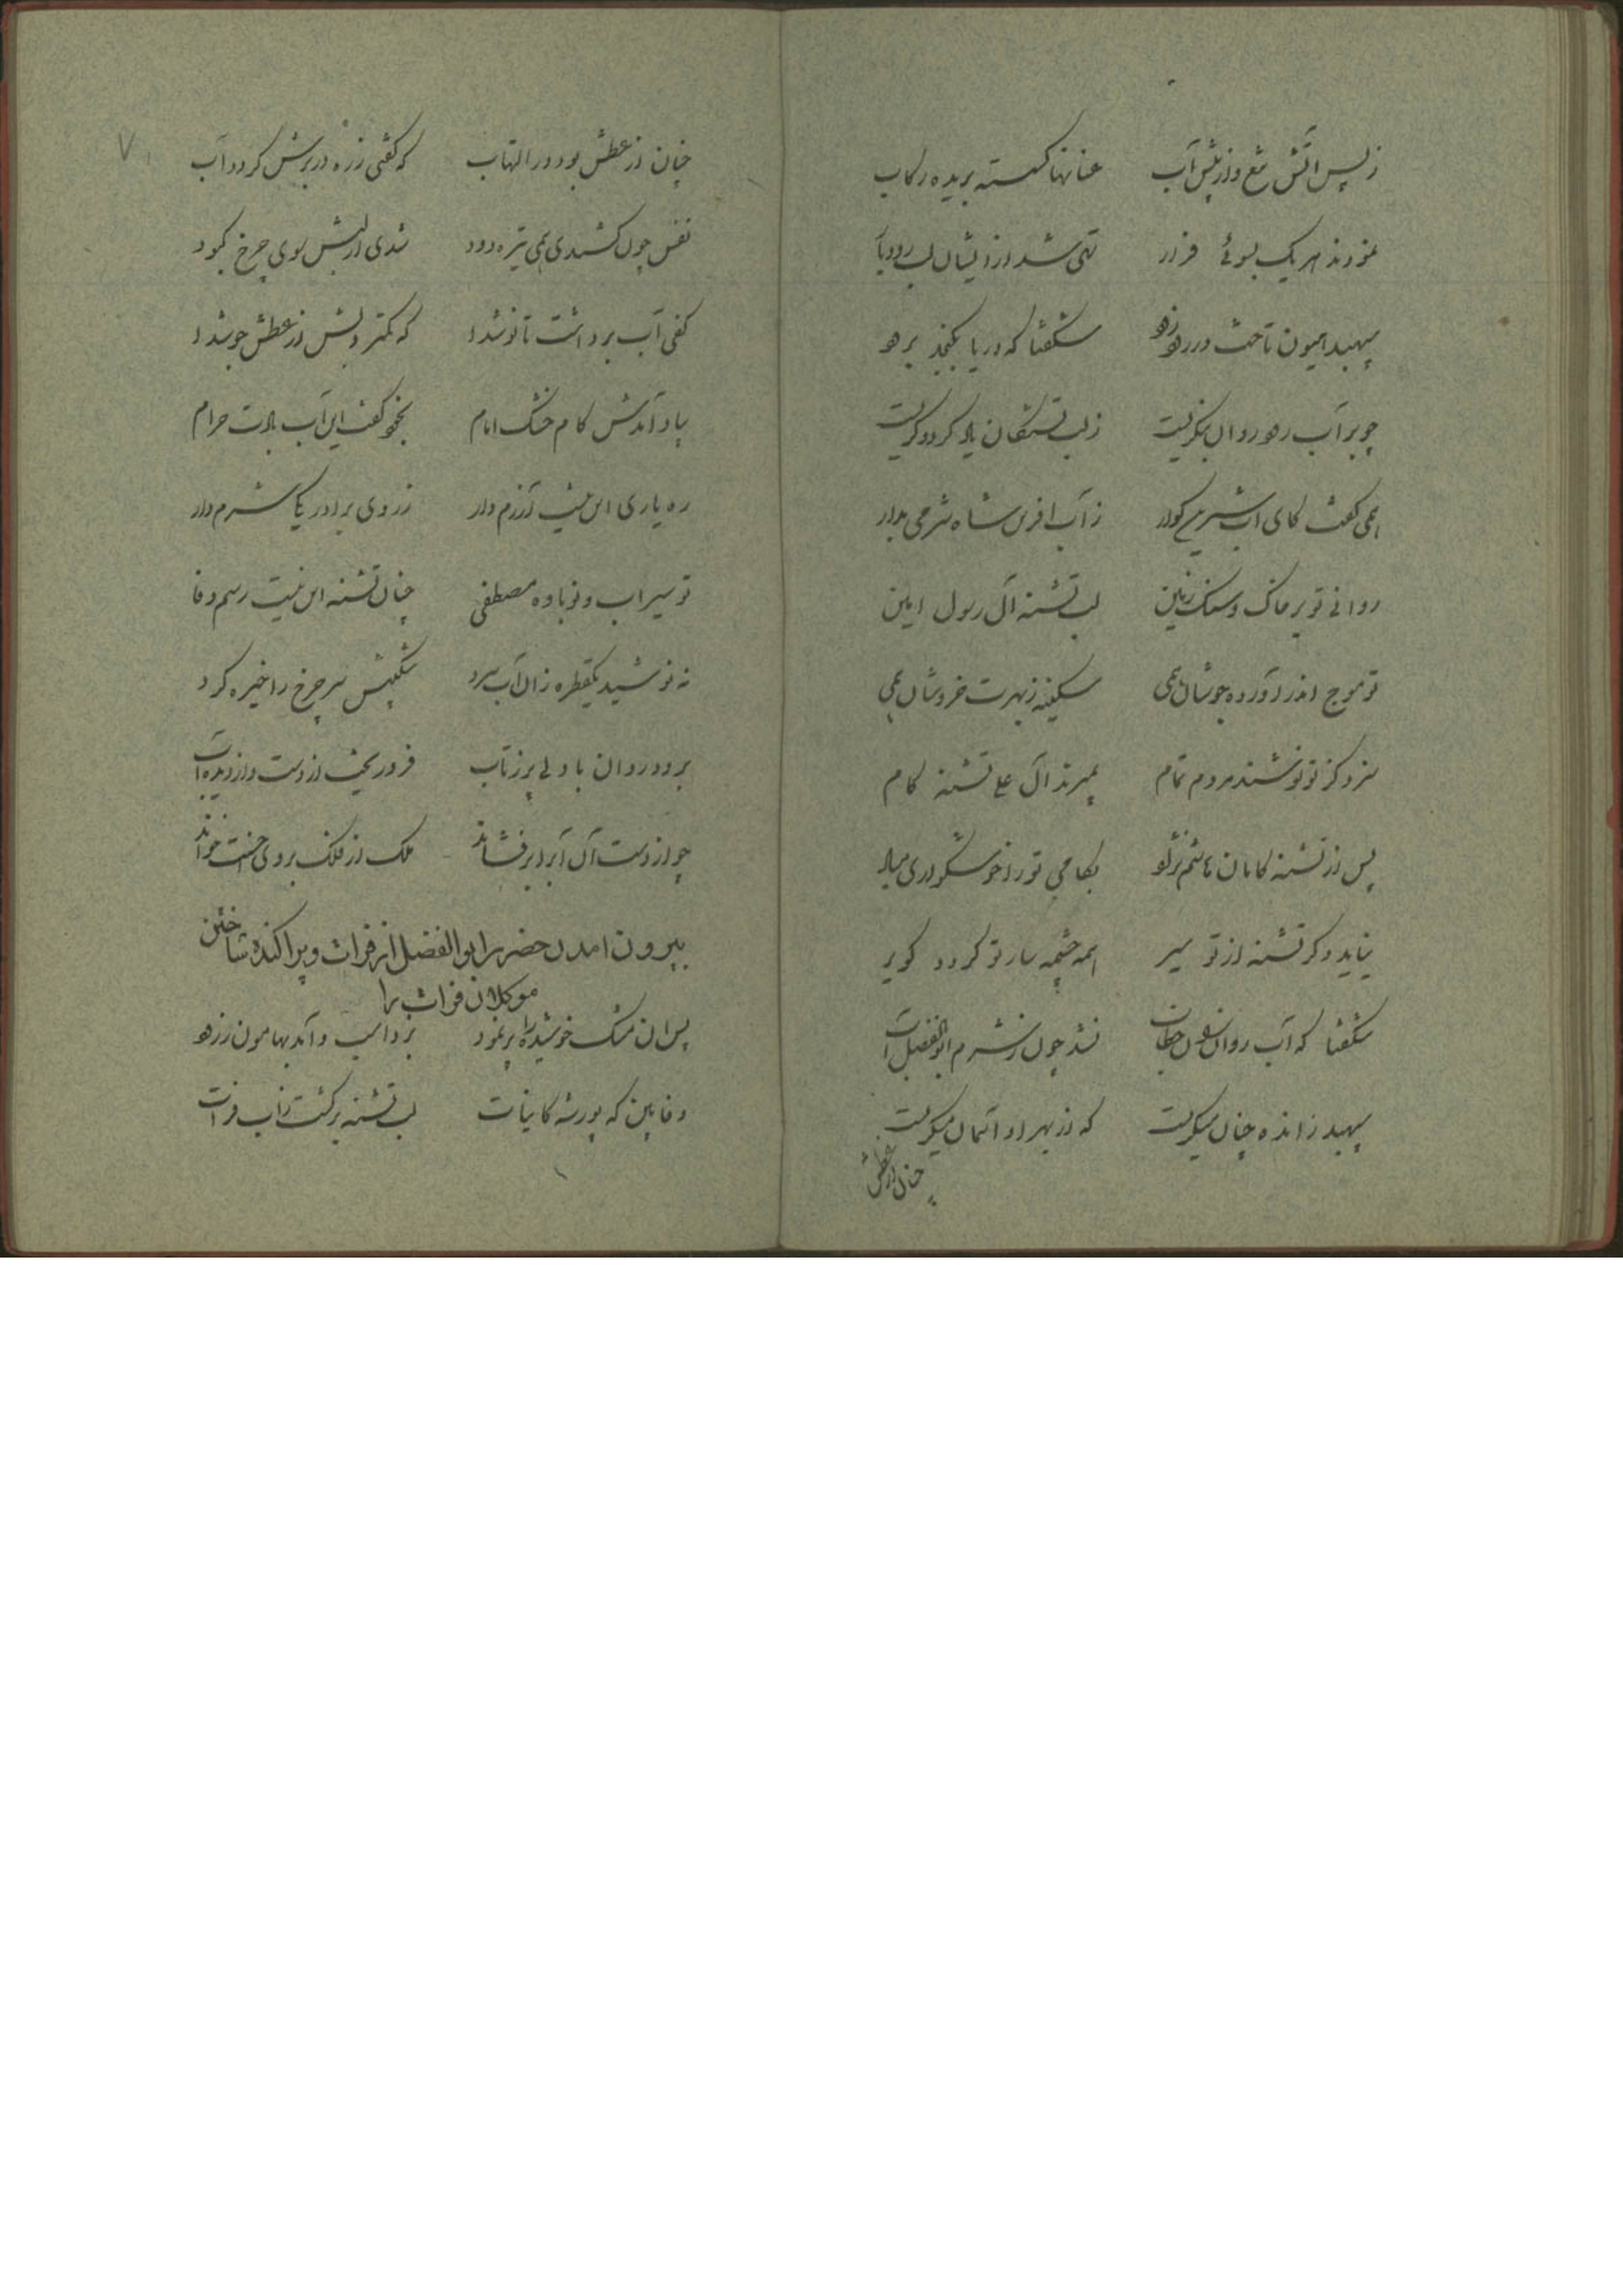 ز پس آتش تیغ و از پیش آب عنانها گسسته بریده رکاب
نمودند هر یک بسوئی فرار تهی شد از ایشان لب رودبار
سپهبد هیون تاخت در رود زود شگفتا که دریا بگنجد برود
چو بر آب رود روان بنگریست ز لب تشنگان یاد کرد و گریست
همی گفت کای آب شیرین گوار ز آب آفرین شاه شرمی بدار
روانی تو بر خاک و سنگ زمین لب تشنه آل رسول امین
تو موج اندر آورده جوشان همی سکینه ز بهرت خروشان همی
سزد کز تو نوشند مردم تمام بمیرند آل علی تشنه کام
پس از تشنه کامان هاشم نژاد بکامی تو را خوشگواری مباد
نیاید دگر تشنه از تو سیر همه چشمه سار تو گردد کویر
شگفتا که آب روان خطاب نشد چون ز شرم ابوالفضل آب
سپهبد ز انده چنان میگریست که از بهر او آسمان میگریست
چنان از عطش
چنان از عطش بود در التهاب که گفتی زره در برش گردد آب
نفس چون کشیدی همی تیره دود شدی از لبش سوی چرخ کبود
کفی آب برداشت تا نوشدا که کمتر دلش از عطش جوشدا
یاد آمدش کام خشک امام بخود گفت این آب بادت حرام
ره یاری این نیست آزرم دار ز روی برادر یکی شرم دار
تو سیراب و نوباوه مصطفی چنان تشنه این نیست رسم وفا
نه نوشید یکقطره زان آب سرد شکیبش سر چرخ را خیره کرد
برود روان با دلی پر ز تاب فرو ریخت از دست و از دیده آب
چو از دست آن آب را برفشاند ملک از فلک بر وی احسنت خواند
بیرون امدن حضرت ابوالفضل از فرات و پراکنده ساختن
موکلان فرات را
پس آن مشک خوشیده را پر نمود برداشت و آمد بهامون ز رود
وفا بین که پور شه کاینات لب تشنه برگشت ز آب فرات